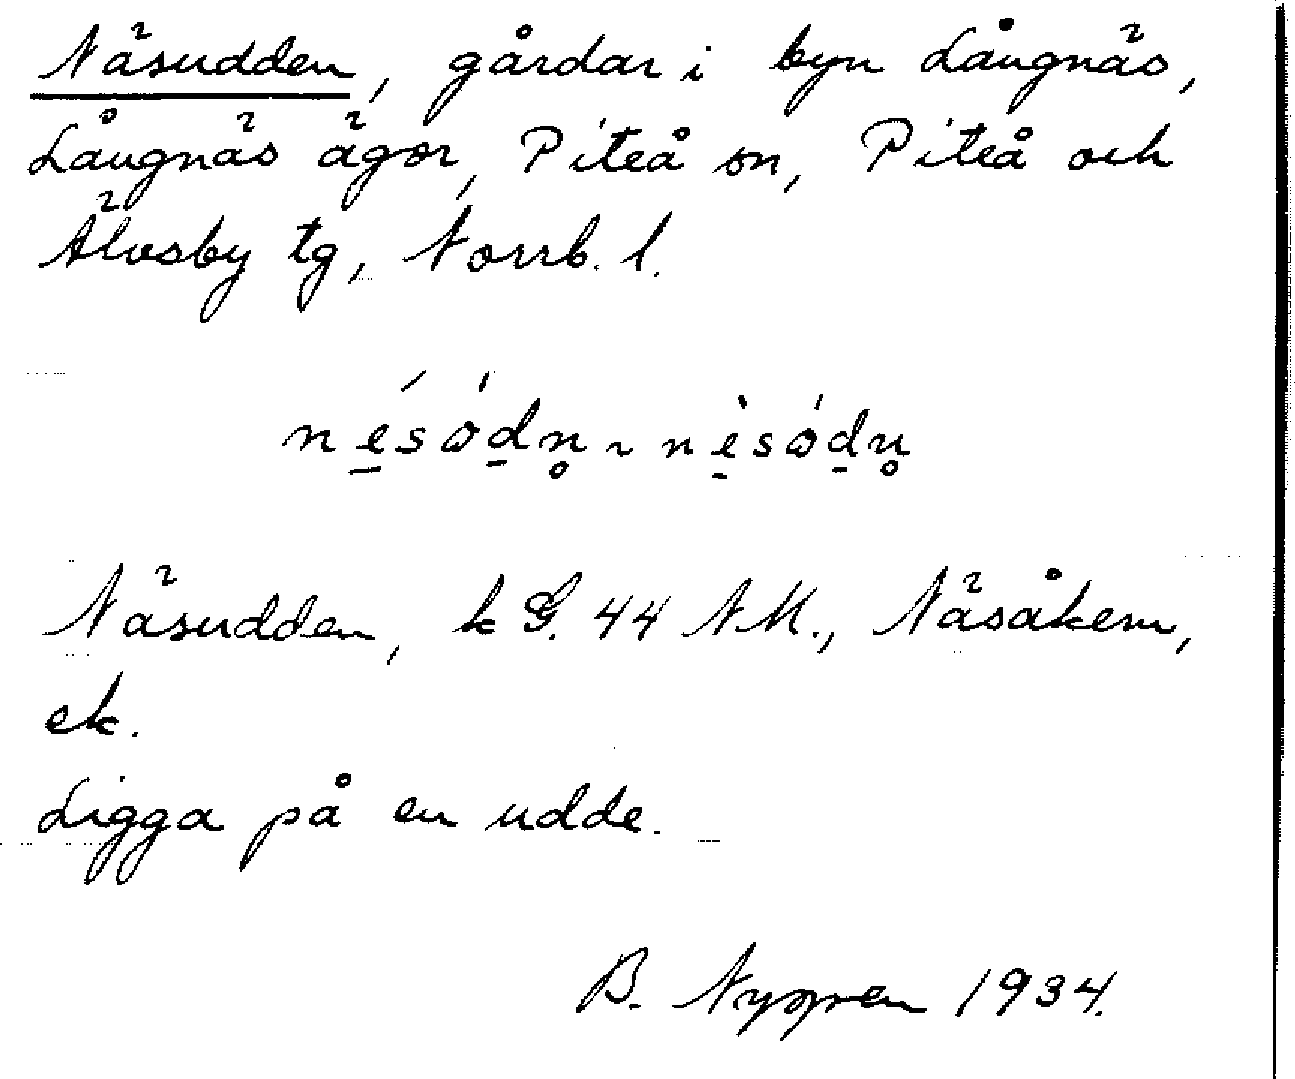 Näsudden, gårdar i byn Långnäs,
Långnäs ägor, Piteå sn, Piteå och
Älvsby tg, Norrb. l.
Näsudden, k G. 44 NM., Näsåkern,
ek.
Ligga på en udde.
B. 1934.